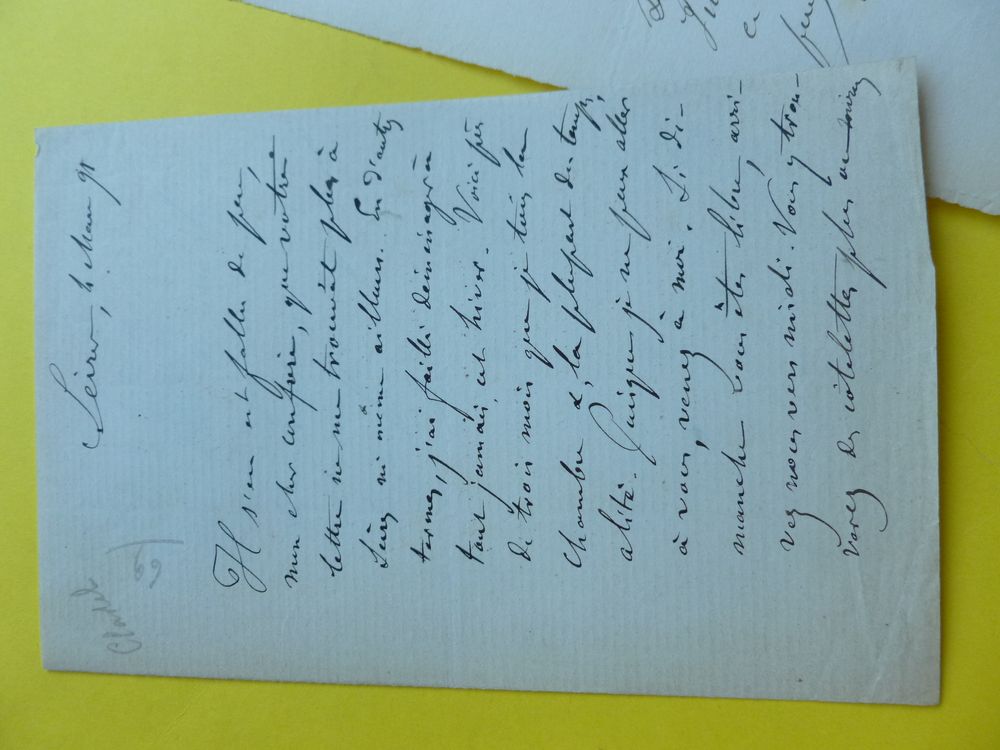 Cladel
Sèvres, 4 Mars 91
Il s'en est fallu de peu,
mon cher confrère, que votre
lettre ne me trouvât plus à
Sèvres ni même ailleurs. En d'autres
termes, j'ai failli déménager à
tout jamais, cet hiver. Voici près
de trois mois que je tiens la
chambre &, la plupart du temps,
alité. Puisque je ne peux aller
à vous, venez à moi. Si di-
manche vous êtes libre, arri-
vez nous vers midi. Vous y trou-
verez des côtelettes plus ou moins